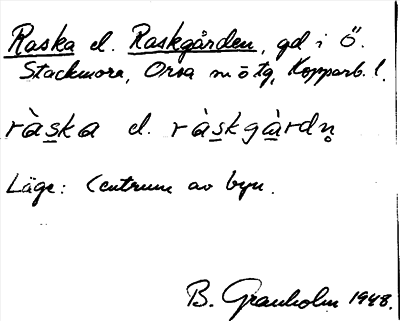 Raska el. Raskgården, gd i Ö.
Stackmora, Orsa sn o tg, Kopparb. l.
ràs̲ka el. ràs̲kgà̲rdn̥
Läge: Centrum av byn.
B. Granholm 1948.